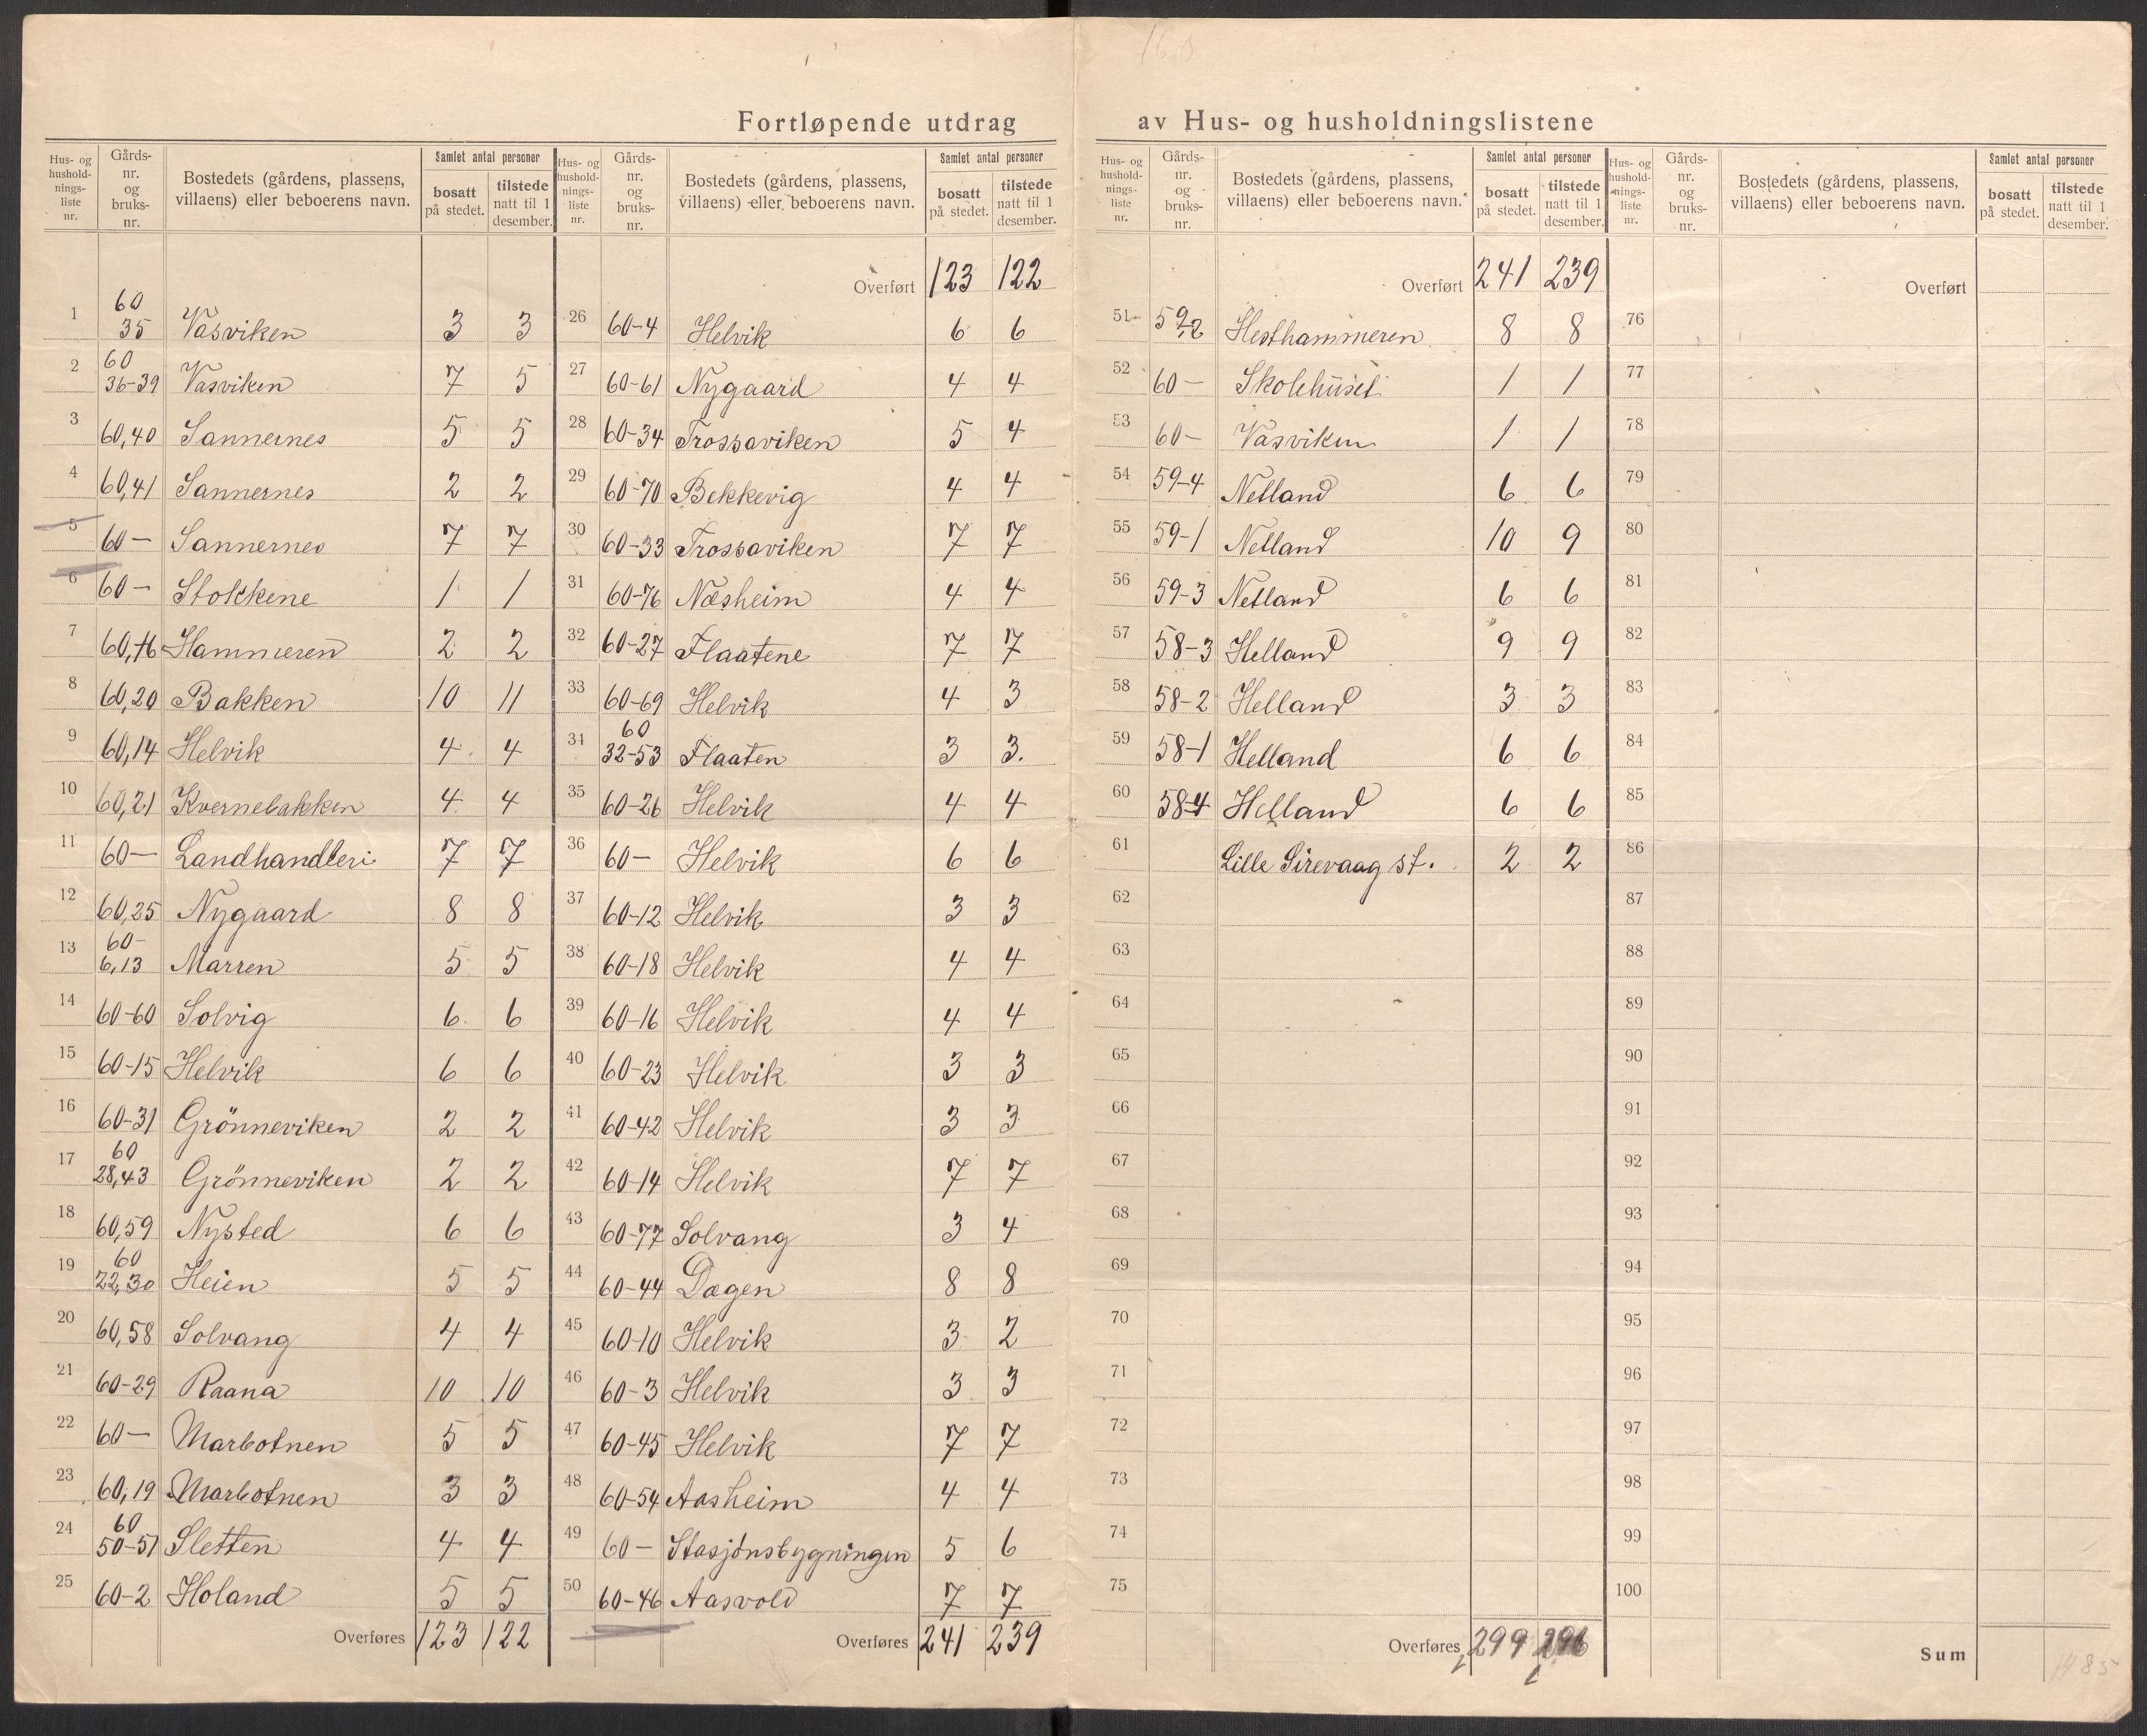 Fortløpende utdrag av Hus- og husholdningslistene
Hus- og hushold-nings-liste nr. Gårds-nr. og bruks-nr. Bostedets (gårdens, plassens, villaens) eller beboerens navn. Samlet antal personer bosatt på stedet. tilstede natt til 1 desember.
1 60 35 Vasviken 3 3
2 60 36-39 Vasviken 7 5
3 60,40 Sannernes 5 5
4 60,41 Sannernes 2 2
5 60- Sannernes 7 7
6 60- Stokkene 1 1
7 60, Hammeren 2 2
8 60,20 Bakken 10 11
9 60,14 Helvik 4 4
10 60,21 Kvernebakken 4 4
11 60- Landhandleri 7 7
12 60,25 Nygaard 8 8
13 60- 6,13 Marren 5 5
14 60-60 Solvig 6 6
15 60-15 Helvik 6 6
16 60-31 Grönneviken 2 2
17 60 28,43 Grönneviken 2 2
18 60,59 Nysted 6 6
19 60 22,30 Heien 5 5
20 60,58 Solvang 4 4
21 60-29 Raana 10 10
22 60- Marbotnen 5 5
23 60,19 Marbotnen 3 3
24 60 50-51 Sletten 4 4
25 60-2 Holand 5 5
Overføres 123 122
Hus- og hushold-nings-liste nr. Gårds-nr. og bruks-nr. Bostedets (gårdens, plassens, villaens) eller beboerens navn. Samlet antal personer bosatt på stedet. tilstede natt til 1 desember.
Overført 123 122
26 60-4 Helvik 6 6
27 60-61 Nygaard 4 4
28 60-34 Trossaviken 5 4
29 60-70 Bekkevig 4 4
30 60-33 Trossaviken 7 7
31 60-76 Næsheim 4 4
32 60-27 Flaatene 7 7
33 60-69 Helvik 4 3
34 60 32-53 Flaaten 3 3.
35 60-26 Helvik 4 4
36 60- Helvik 6 6
37 60-12 Helvik 3 3
38 60-18 Helvik 4 4
39 60-16 Helvik 4 4
40 60-23 Helvik 3 3
41 60-42 Helvik 3 3
42 60-14 Helvik 7 7
43 60-77 Solvang 3 4
44 60-44 Dagen 8 8
45 60-10 Helvik 3 2
46 60-3 Helvik 3 3
47 60-45 Helvik 7 7
48 60-54 Aasheim 4 4
49 60- Stasjonsbygningen 5 6
50 60-46 Aasvold 7 7
Overføres 241 239
Hus- og hushold-nings-liste nr. Gårds-nr. og bruks-nr. Bostedets (gårdens, plassens, villaens) eller beboerens navn. Samlet antal personer bosatt på stedet. tilstede natt til 1 desember.
Overført 241 239
51 59,2 Hesthammeren 8 8
52 60- Skolehuset 1 1
53 60- Vasviken 1 1
54 59-4 Netland 6 6
55 59-1 Netland 10 9
56 59-3 Netland 6 6
57 58-3 Helland 9 9
58 58-2 Helland 3 3
59 58-1 Helland 6 6
60 58-4 Helland 6 6
61 Lille Sirevaag st. 2 2
62
63
64
65
66
67
68
69
70
71
72
73
74
75
Overføres 299 296
Hus- og hushold-nings-liste nr. Gårds-nr. og bruks-nr. Bostedets (gårdens, plassens, villaens) eller beboerens navn. Samlet antal personer bosatt på stedet. tilstede natt til 1 desember.
Overført
76
77
78
79
80
81
82
83
84
85
86
87
88
89
90
91
92
93
94
95
96
97
98
99
100
Sum